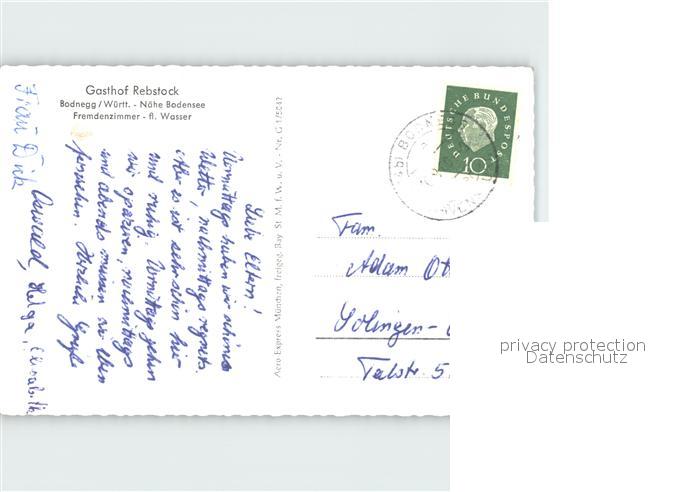 Gasthof Rebstock
Bodnegg / Württ. - Nähe Bodensee
Fremdenzimmer - fl. Wasser
Liebe Eltern!
Vormittags haben wir schönes
Wetter, nachmittags regnets.
Aber es ist sehr schön hier
und ruhig. Vormittags gehen
wir spazieren, nachmittags
und abends müssen wir eben
fernsehen. Herzliche Grüße
Oswald, Helga, Elisabeth
Frau Dick
Aero Express München, freigeg. Bay. St. M. f. W. u. V. - Nr. G 1/5042
DEUTSCHE BUNDESPOST
10
Fam.
Adam
Solingen-
Talstr. 5
privacy protection
Datenschutz